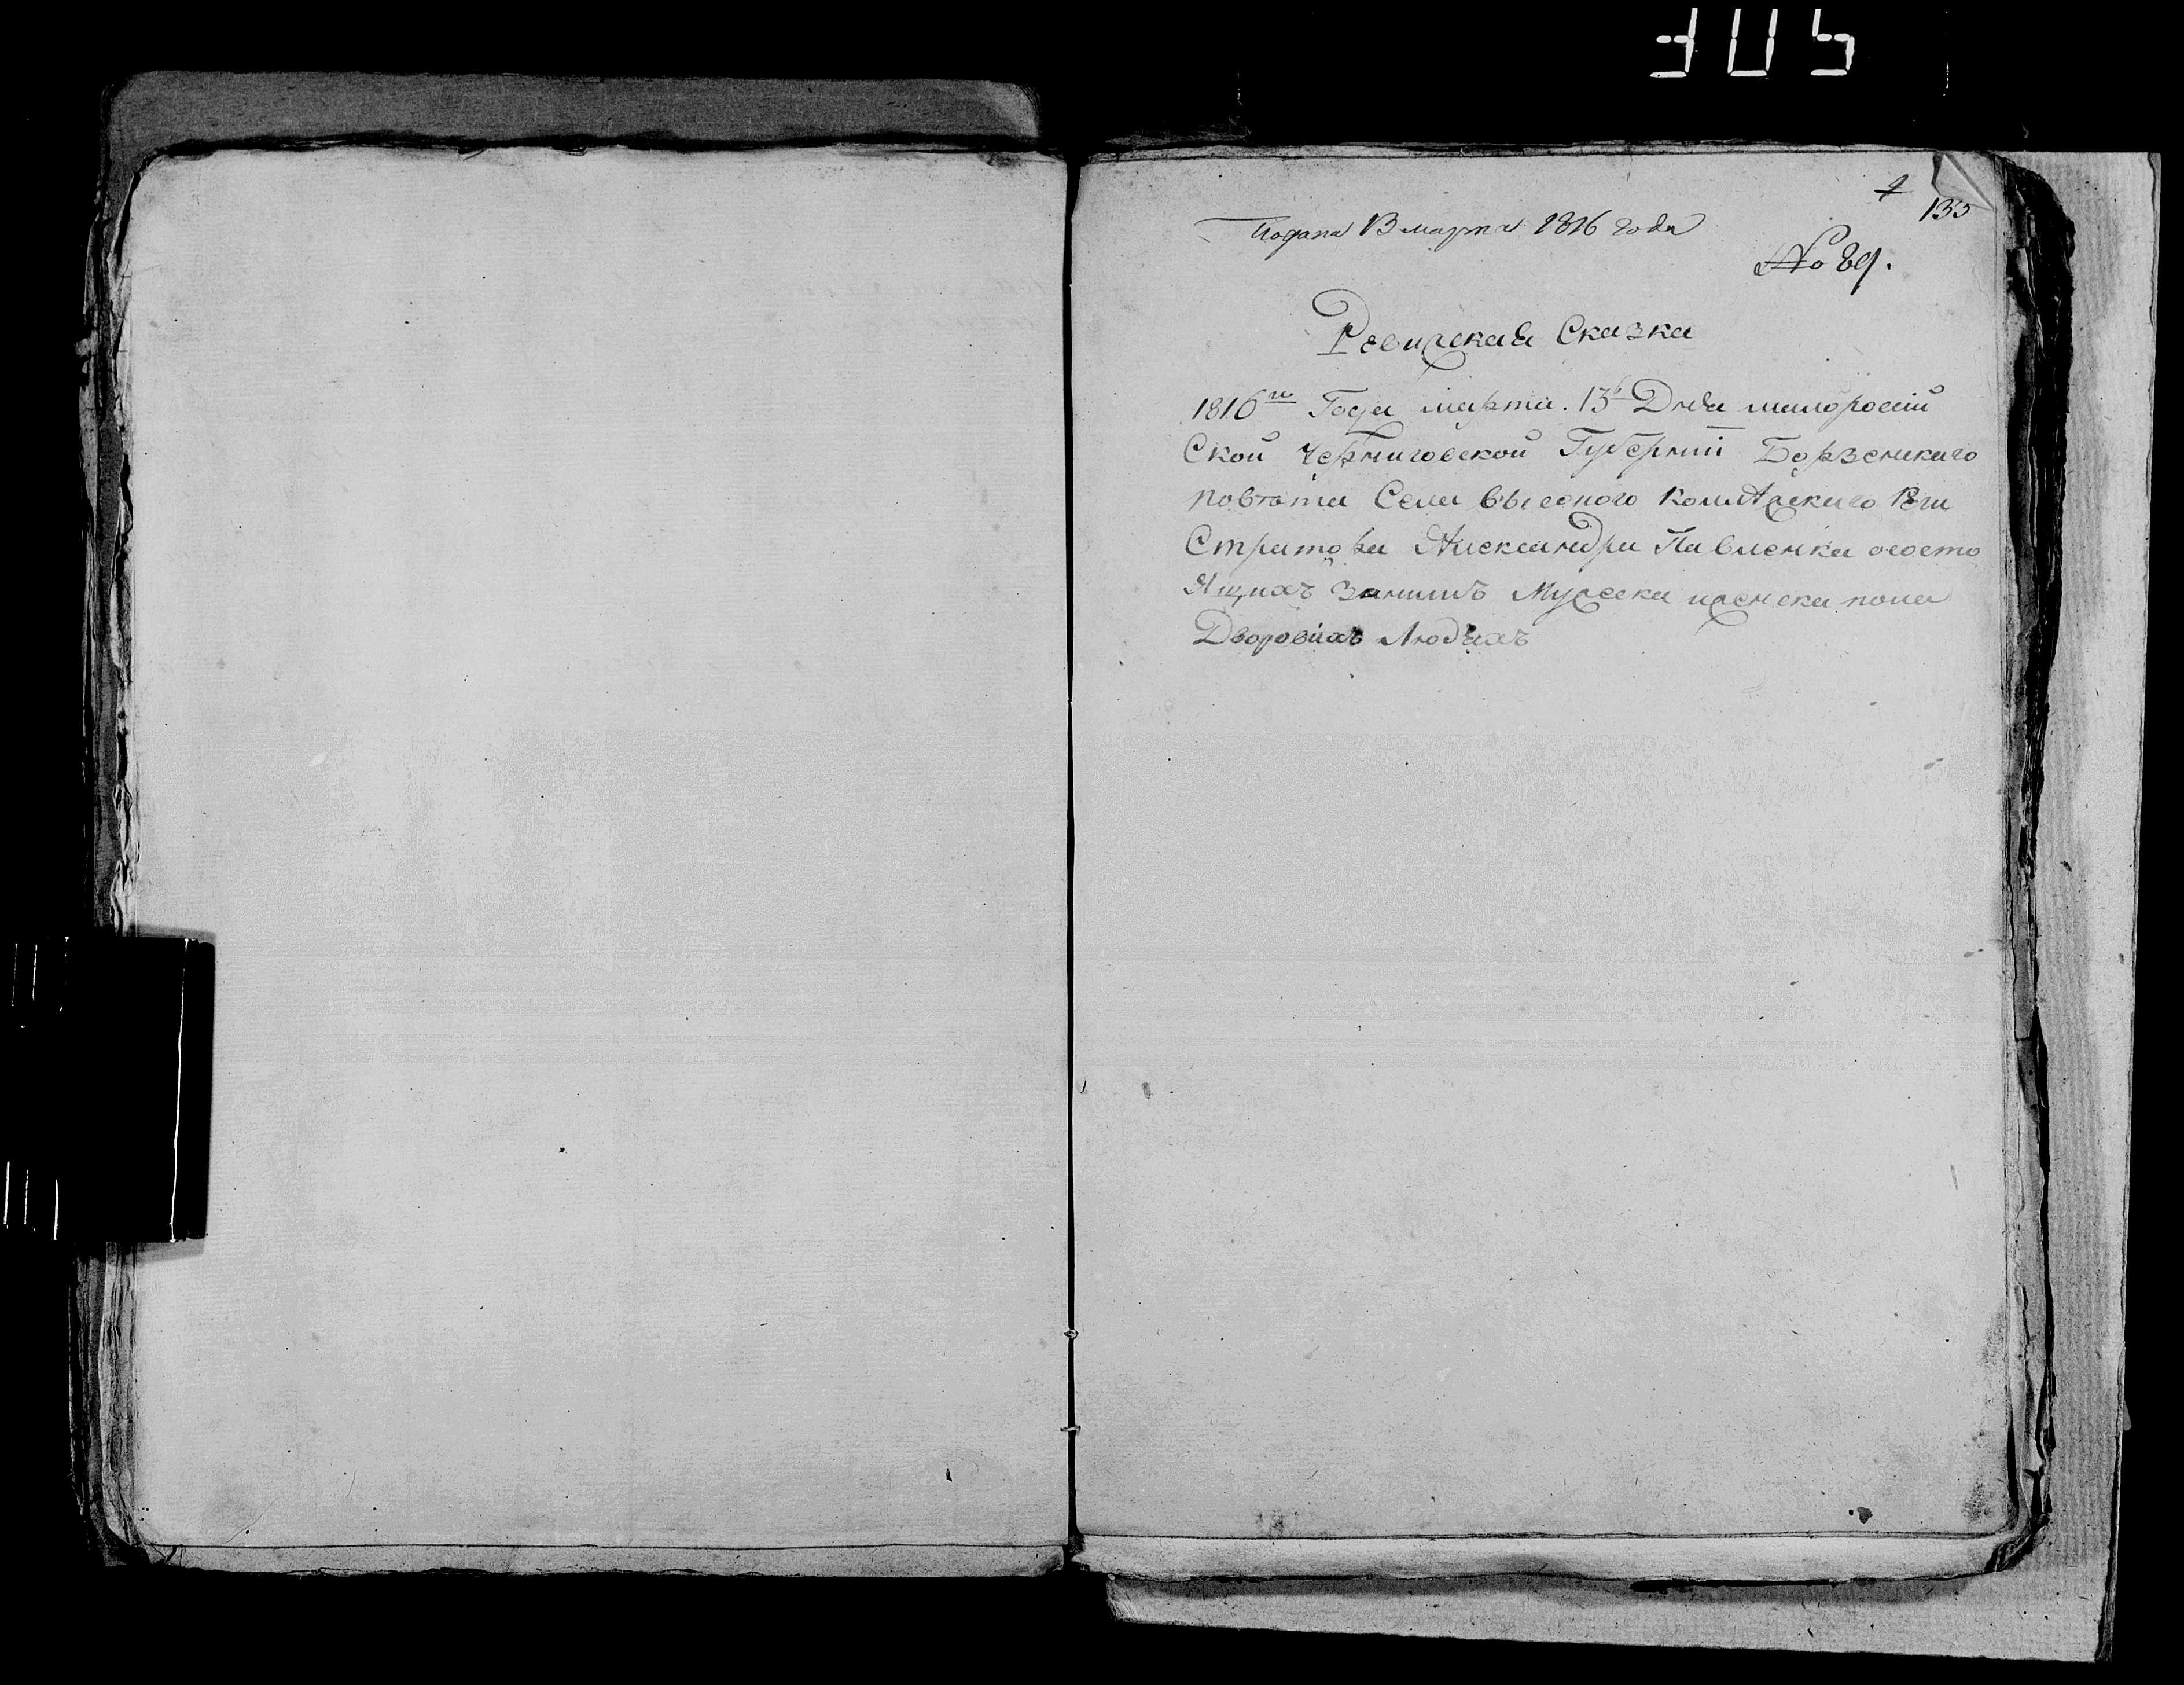 305
1
135
Подана 13 марта 1816 года
№ 89.
Ревизская Сказка
1816го Года марта. 13 Дня малоросій
Ской Черниговской Губерніи Борзенскаго
повѣта Села высокого Коллѣзского Реги
Стратора Александра Павленка ососто
Ящихъ занимъ Мужеска иженска пола
Дворовихъ Людѣхъ